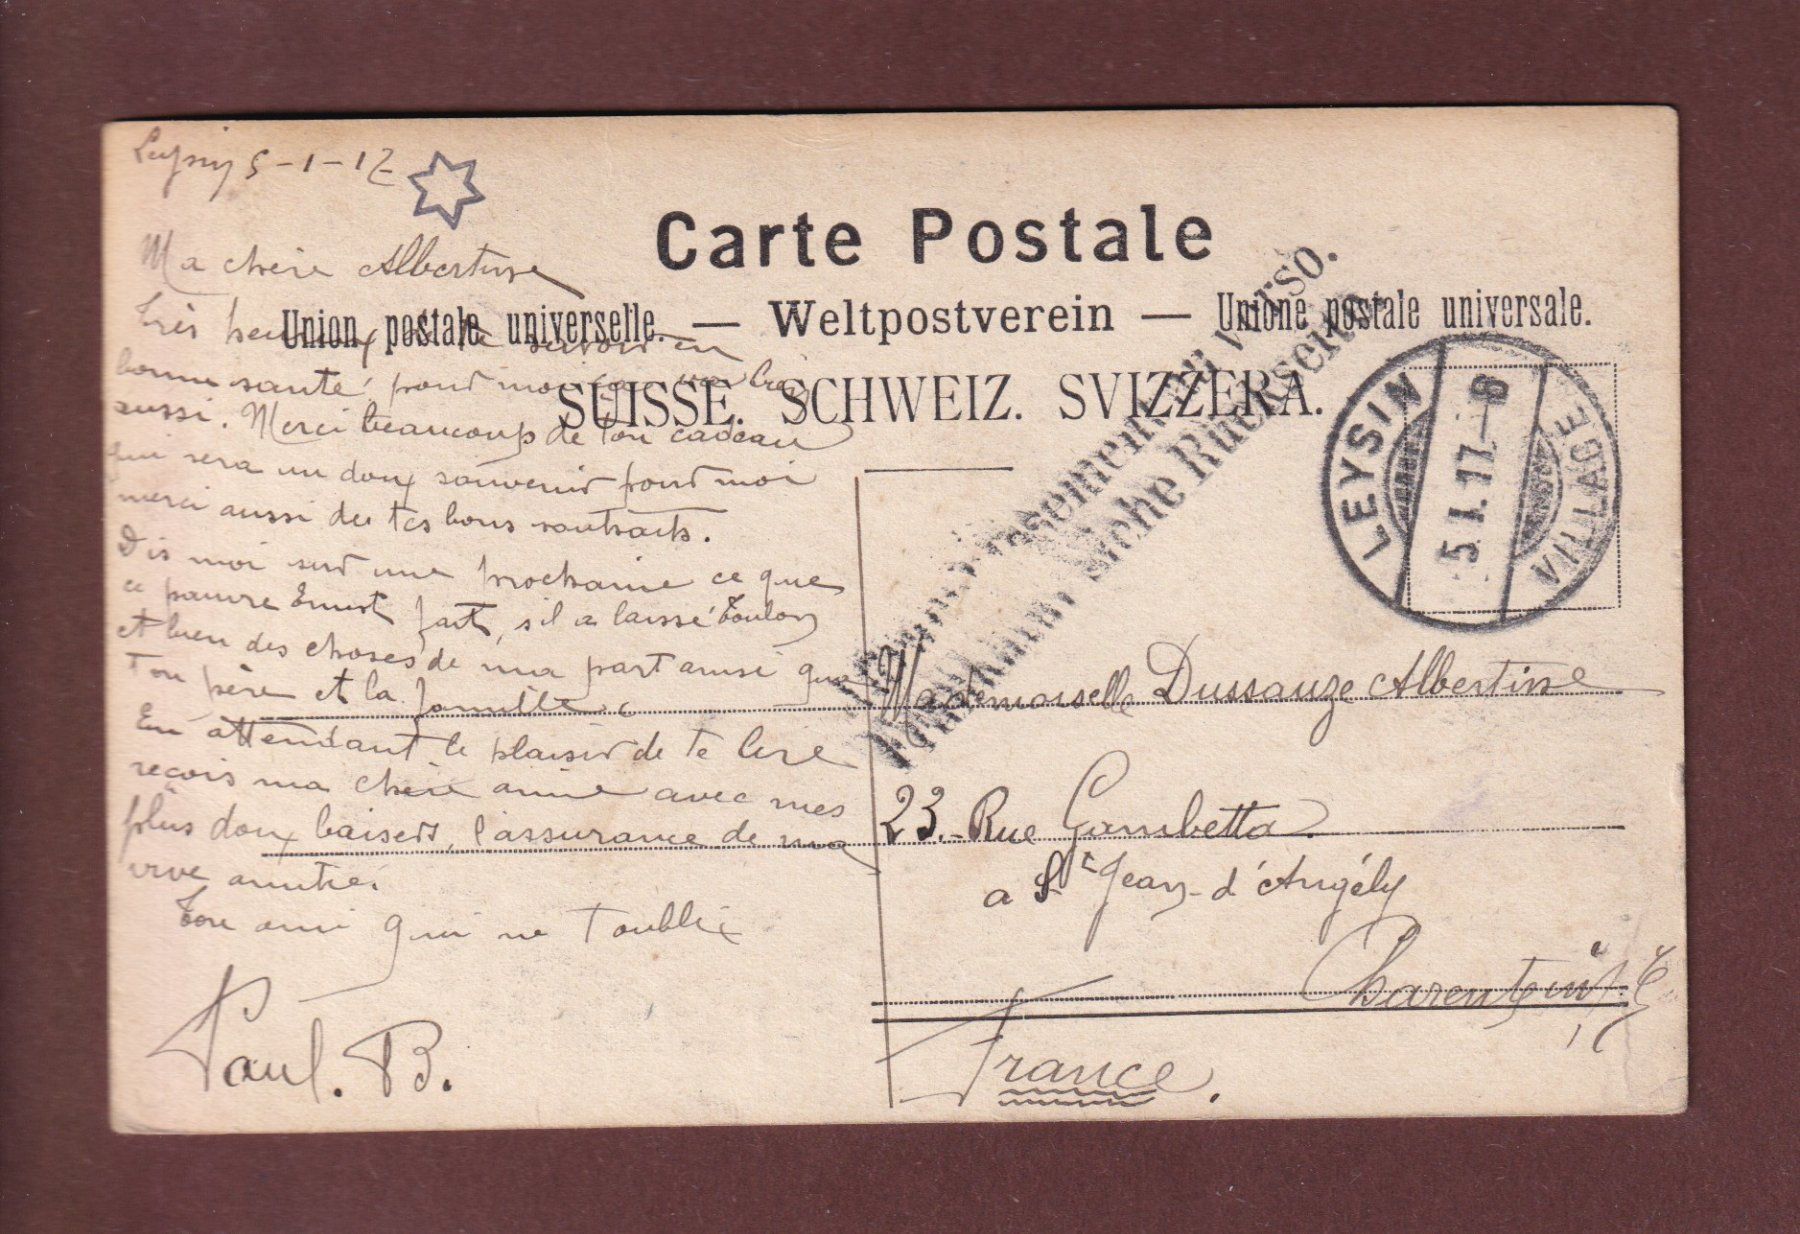 Leysin 5-1-17
Carte Postale
Union postale universelle. — Weltpostverein — Unione postale universale.
SUISSE. SCHWEIZ. SVIZZERA.
Ma chère Albertine
Très heureux de te savoir en
bonne santé, pour moi ça va bien
aussi. Merci beaucoup de ton cadeau
qui sera un doux souvenir pour moi
merci aussi de tes bons souhaits.
Dis moi sur une prochaine ce que
ce pauvre Ernest fait, s'il a laissé Toulon
et bien des choses de ma part ainsi que
ton père et la famille.
En attendant le plaisir de te lire
reçois ma chère amie avec mes
plus doux baisers, l'assurance de ma
vive amitié.
Ton ami qui ne t'oublie
Paul. B.
verso.
siehe Rückseite
LEYSIN
5.I.17.–8
VILLAGE
Mademoiselle Dussauze Albertine
23.- Rue Gambetta
a St Jean-d'Angély
Charente inf.
France.